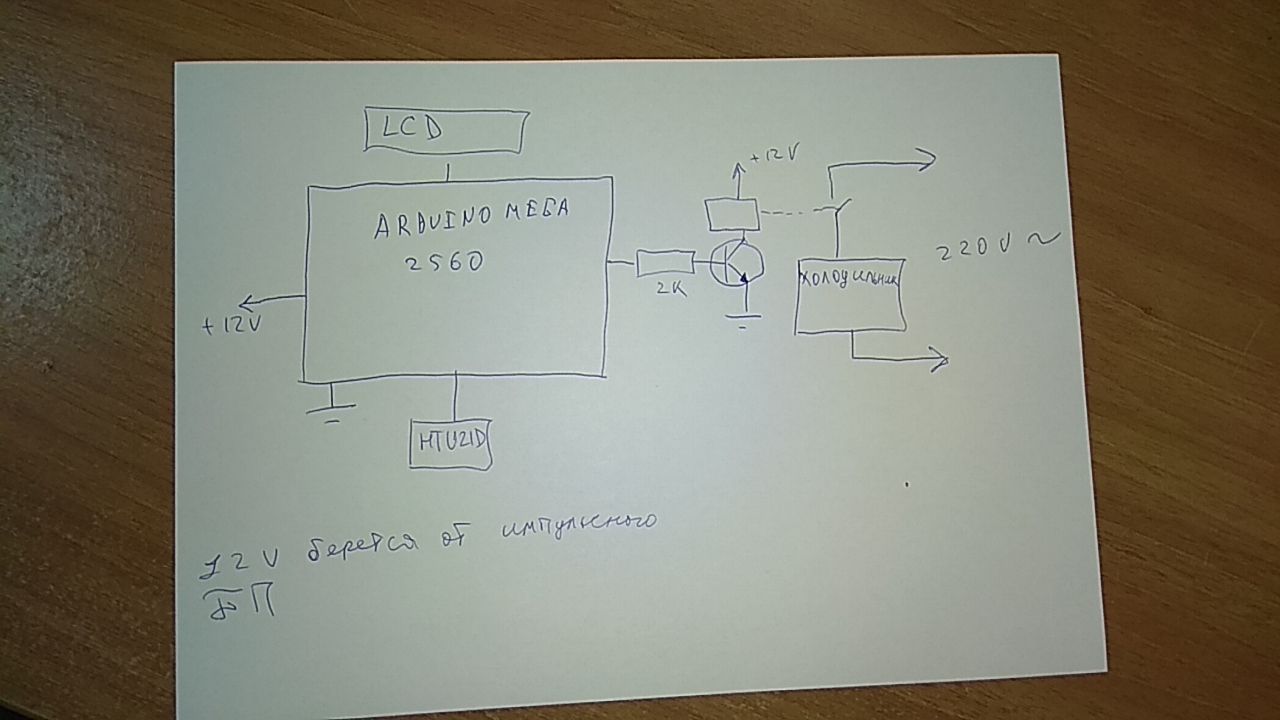 LCD
ARDUINO MEGA
2560
+12V
+12V
2K
ХОЛОДИЛЬНИК
220V ~
HTU21D
12V берется от импульсного
БП